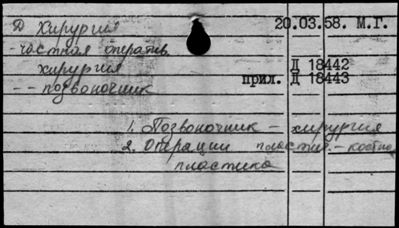 Д Хирургия 20.03.58. М.Г.
- частная оператив.
хирургия Д 18442
-- позвоночник прил. Д 18443
1. Позвоночник – хирургия
2. Операции пластич. – костно
пластика